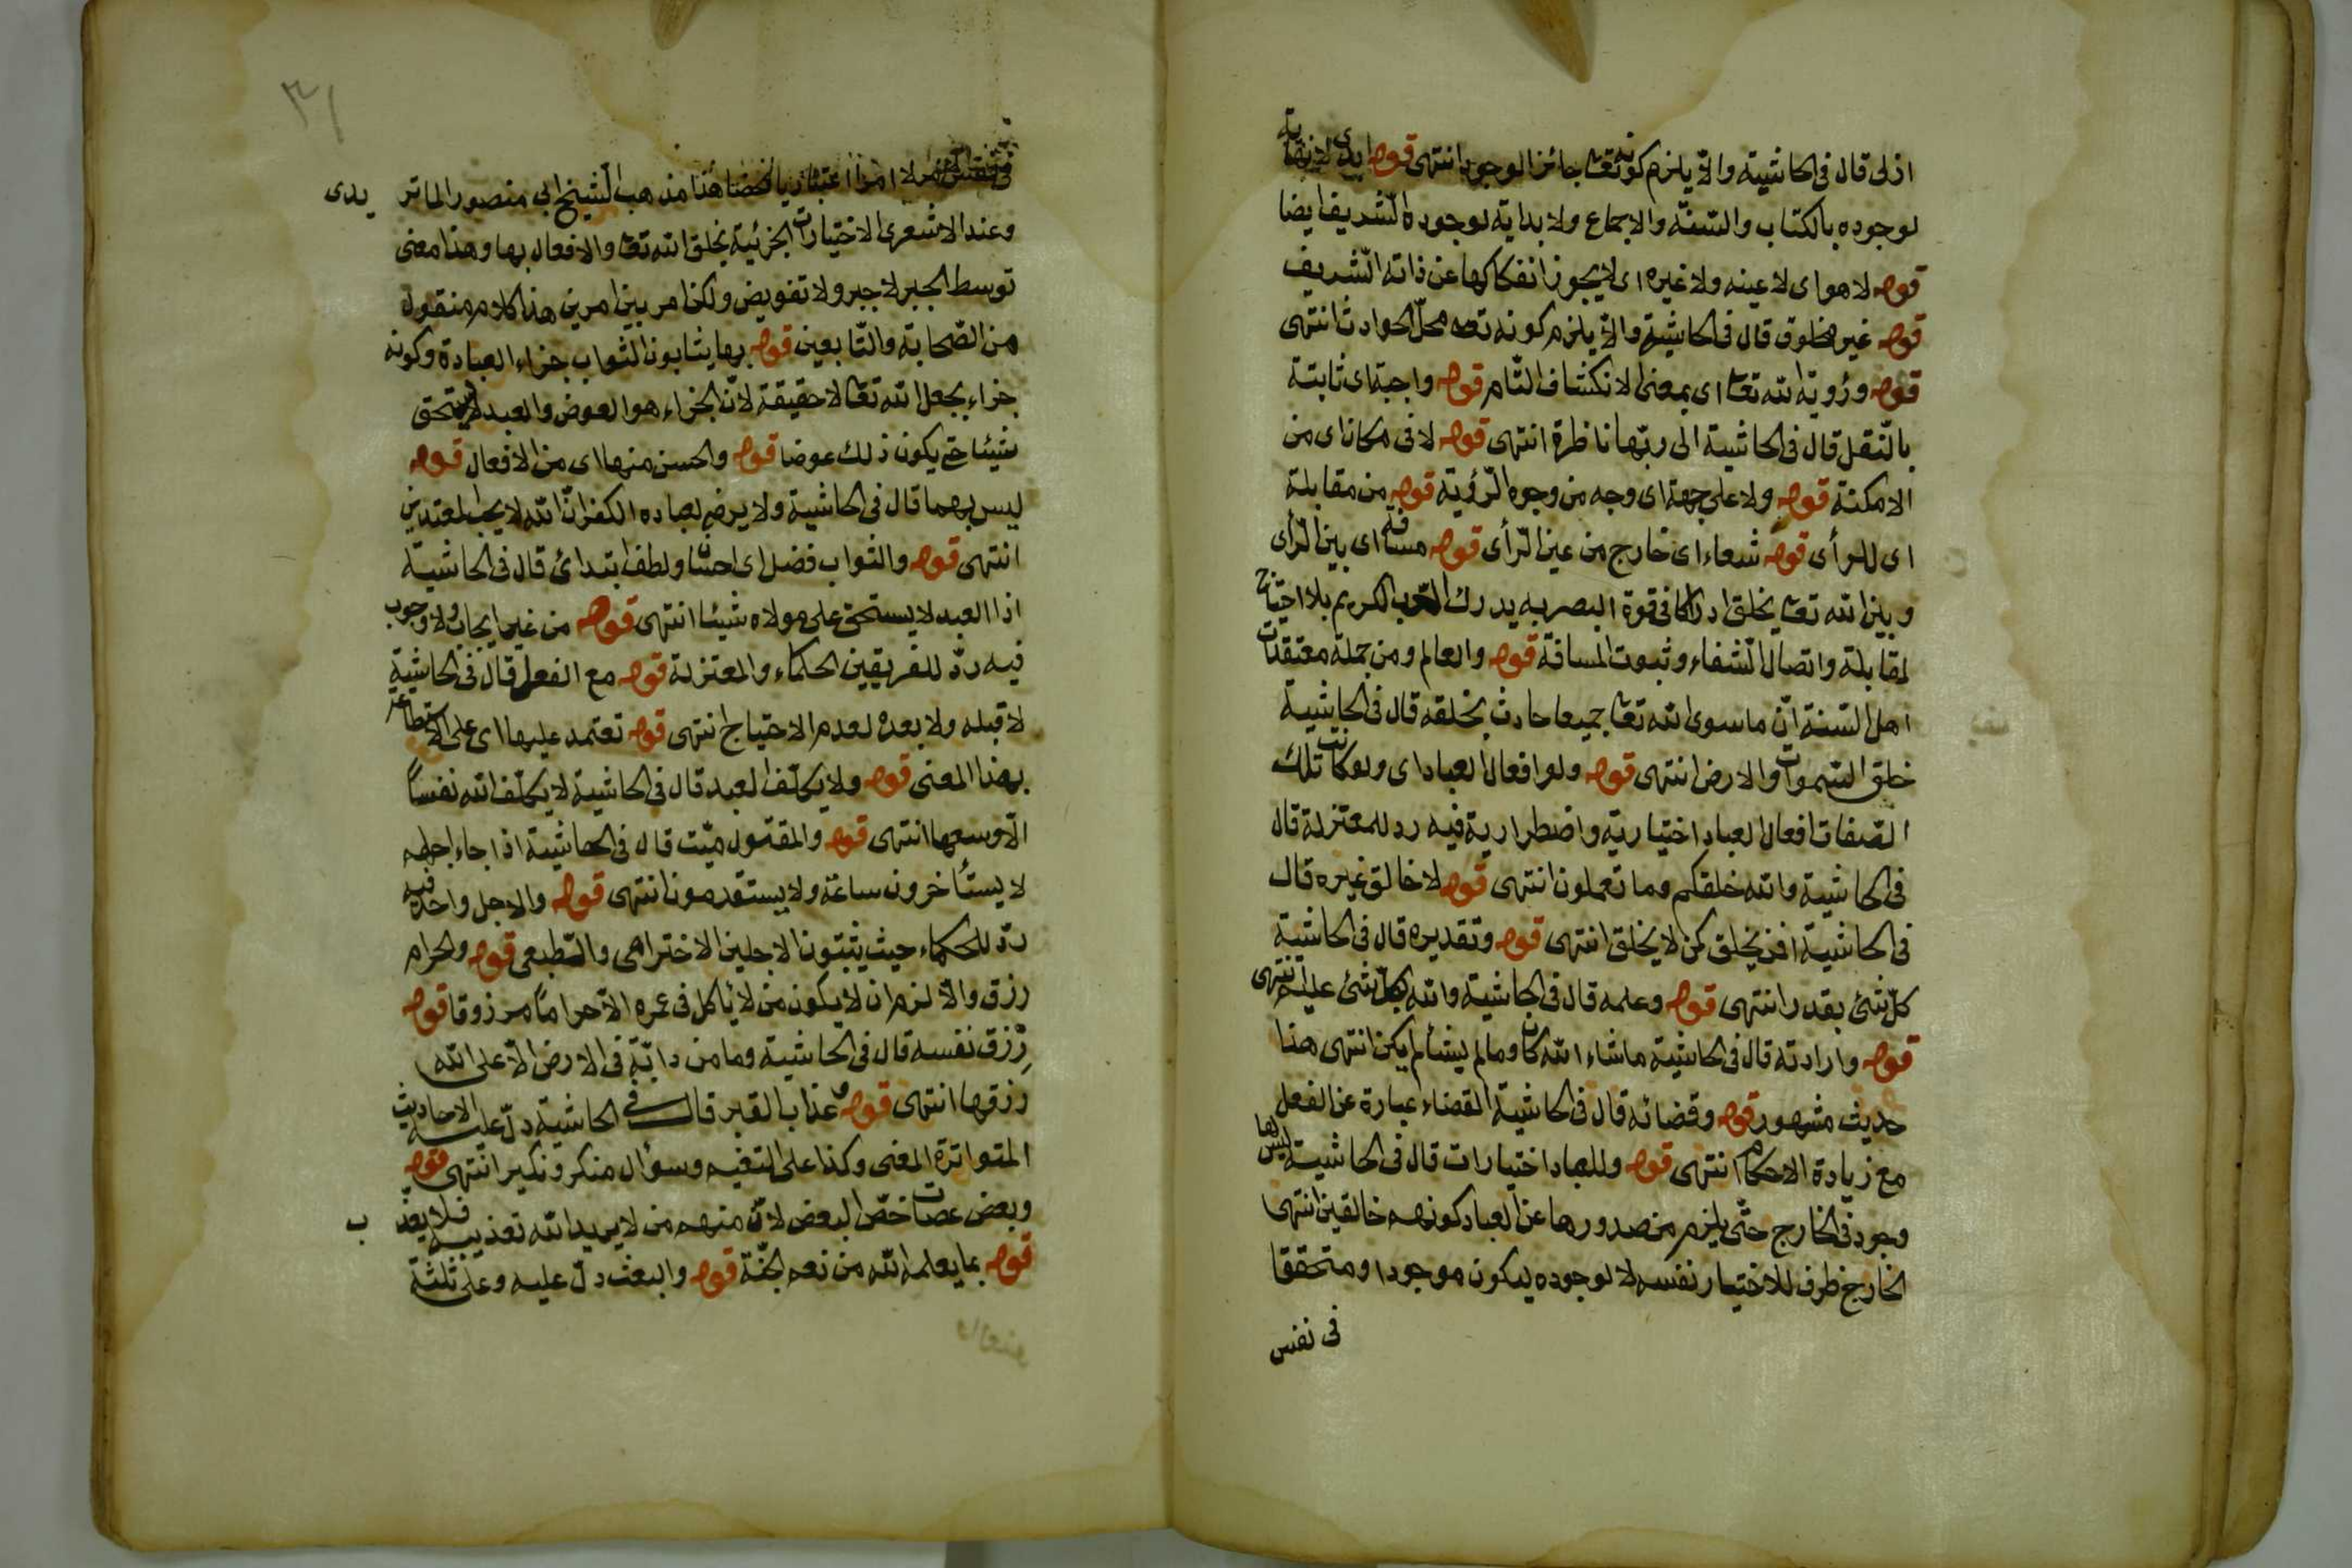 ازلى قال فى الحاشية والا يلزم كونه تعا جائز الوجود انتهى قوله ابدى لا نهاية
لوجوده بالكتاب والسنة والاجماع ولا بداية لوجوده الشريف ايضا
قوله لا هو اى لا عينه ولا غيره اى لا يجوز انفكاكها عن ذاته الشريف
قوله غير مخلوق قال فى الحاشية والا يلزم كونه تعه محل الحوادث انتهى
قوله ورؤية الله تعا اى بمعنى الانكشاف التام قوله واجبة اى ثابتة
بالنقل قال فى الحاشية الى ربها ناظرة انتهى قوله لا فى مكان اى من
الامكنة قوله ولا على جهة اى وجه من وجوه الرؤية قوله من مقابلة
اى للرأى قوله شعاء اى خارج من عين الرأى قوله مسافة اى بين الرأى
وبين الله تعا يخلق ادراكا فى قوة البصر به يدرك الرب الكريم بلا احتياج
لمقابلة واتصال الشفاء وثبوت المسافة قوله والعالم ومن جملة معتقدات
اهل السنة ان ما سوى الله تعا جميعا حادث بخلقه قال فى الحاشية
خلق السموات والارض انتهى قوله ولو افعال العباد اى ولو كانت تلك
الصفات افعال العباد اختيارية واضطرارية فيه رد للمعتزلة قال
فى الحاشية والله خلقكم وما تعملون انتهى قوله لا خالق غيره قال
فى الحاشية افمن يخلق كمن لا يخلق انتهى قوله وتقديره قال فى الحاشية
كل شئ بقدر انتهى قوله وعلمه قال فى الحاشية والله بكل شئ عليم انتهى
قوله وارادته قال فى الحاشية ما شاء الله كان وما لم يشأ لم يكن انتهى هذا
حديث مشهور قوله وقضائه قال فى الحاشية القضاء عبارة عن الفعل
مع زيادة الاحكام انتهى قوله وللعباد اختيارات قال فى الحاشية ليس لها
وجود فى الخارج حتى يلزم من صدورها عن العباد كونهم خالقين انتهى
الخارج ظرف للاختيار نفسه لا لوجوده ليكون موجودا ومتحققا
فى نفس
٣١
فى نفس الامر لا امرا اعتباريا محضا هذا مذهب الشيخ ابى منصور الماتريدى
وعند الاشعرى الاختيارات الجزئية بخلق الله تعا والافعال بها وهذا معنى
توسط الجبر لا جبر ولا تفويض ولكن امر بين امرين هذا كلام منقول
من الصحابة والتابعين قوله بها يثابون الثواب جزاء العبادة وكونه
جزاء بجعل الله تعا لا حقيقة لان الجزاء هو العوض والعبد لا يستحق
شيئا حتى يكون ذلك عوضا قوله والحسن منها اى من الافعال قوله
ليس بهما قال فى الحاشية ولا يرضى لعباده الكفر ان الله لا يحب المعتدين
انتهى قوله والثواب فضل اى احسان ولطف ابتدائ قال فى الحاشية
اذا العبد لا يستحق على مولاه شيئا انتهى قوله من غير ايجاب ولا وجوب
فيه رد للفريقين الحكماء والمعتزلة قوله مع الفعل قال فى الحاشية
لا قبله ولا بعده لعدم الاحتياج انتهى قوله تعتمد عليها اى على الاستطاعة
بهذا المعنى قوله ولا يكلف العبد قال فى الحاشية لا يكلف الله نفسا
الا وسعها انتهى قوله والمقتول ميت قال فى الحاشية اذا جاء اجلهم
لا يستأخرون ساعة ولا يستقدمون انتهى قوله والاجل واحد فيه
رد للحكماء حيث يثبتون الاجلين الاخترامى والطبعى قوله والحرام
رزق والا لزم ان لا يكون من لا يأكل فى عمره الا حراما مرزوقا قوله
رزق نفسه قال فى الحاشية وما من دابة فى الارض الا على الله
رزقها انتهى قوله وعذاب القبر قال فى الحاشية دل عليه الاحاديث
المتواترة المعنى وكذا على التنعيم وسؤال منكر ونكير انتهى قوله
وبعض عصات خص البعض لان منهم من لا يريد الله تعذيبه فلا يعذب
قوله بما يعلمه الله من نعم الجنة قوله والبعث دل عليه وعلى ثلثة